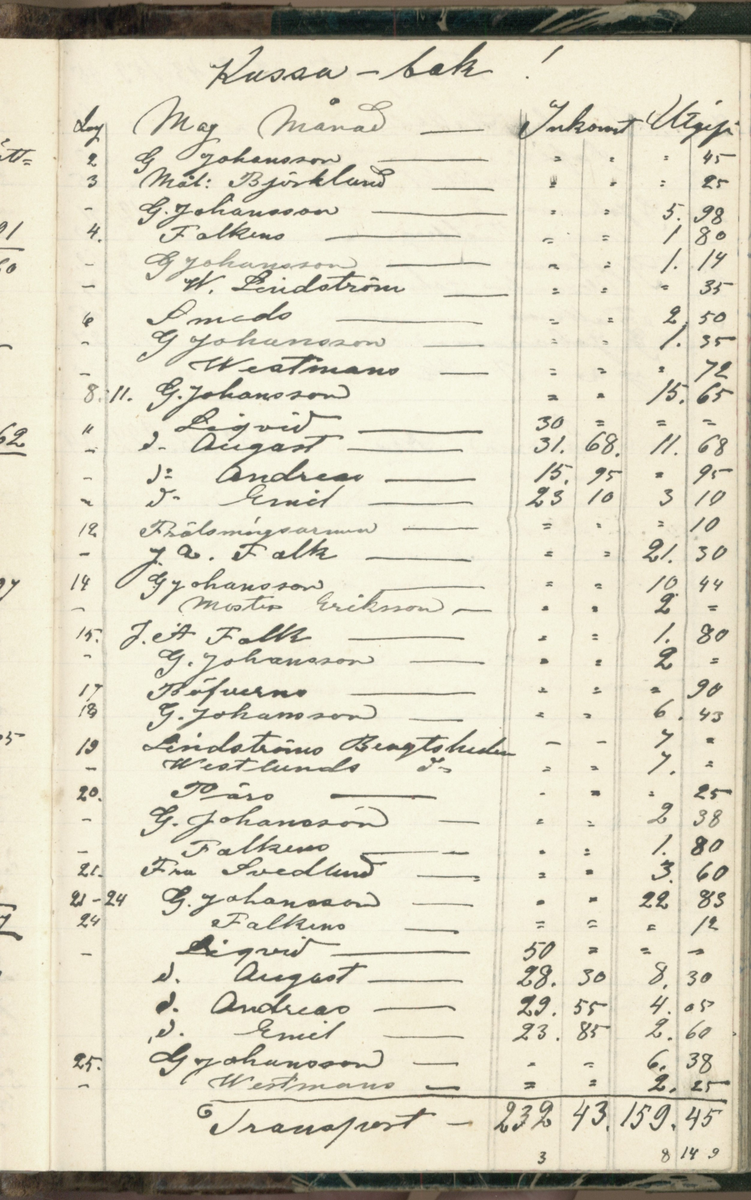 Kassa-bok !
Maj Månad — Inkomst Utgift
2 G Johansson — " " " 45
3 Mål: Björklund — " " " 25
- G. Johansson — " " 5. 98
4. Falkens — " " 1 80
- G Johansson — " " 1. 14
- W. Lindström — " " " 35
6 Smeds — " " 2. 50
- G Johansson — " " 1. 35
- Westmans — " " " 72
8.-11. G. Johansson " " 15. 65
" Liqvid — 30 = = =
- d. August — 31. 68. 11. 68
- d: Andreas — 15. 95 " 95
- d- Emil — 23 10 3 10
12 Frälsningsarmen — " " " 10
- J. A. Falk — " " 21. 30
14 G Johansson — " " 10 44
- Moster Eriksson — " " 2 =
15. J. A Falk — " " 1. 80
- G. Johansson — " " 2 =
17 — " " " 90
18 G. Johansson — " " 6. 43
19 Lindströms Bengtsheden - - 7 "
- Westlunds d- " " 7. "
20. Pärs — " " " 25
- G. Johansson — " " 2 38
- Falkens — " " 1. 80
21. Fru Svedlund — " " 3. 60
21-24 G. Johansson — " " 22 83
24 Falkens — = = = 12
- Liqvid — 50 = = =
d. August — 28. 30 8. 30
d. Andreas — 29. 55 4. 05
d. Emil — 23. 85 2. 60
25. G Johansson — " " 6. 38
- Westmans — " " 2. 25
Transport - 232 43. 159. 45
3 8 14 9